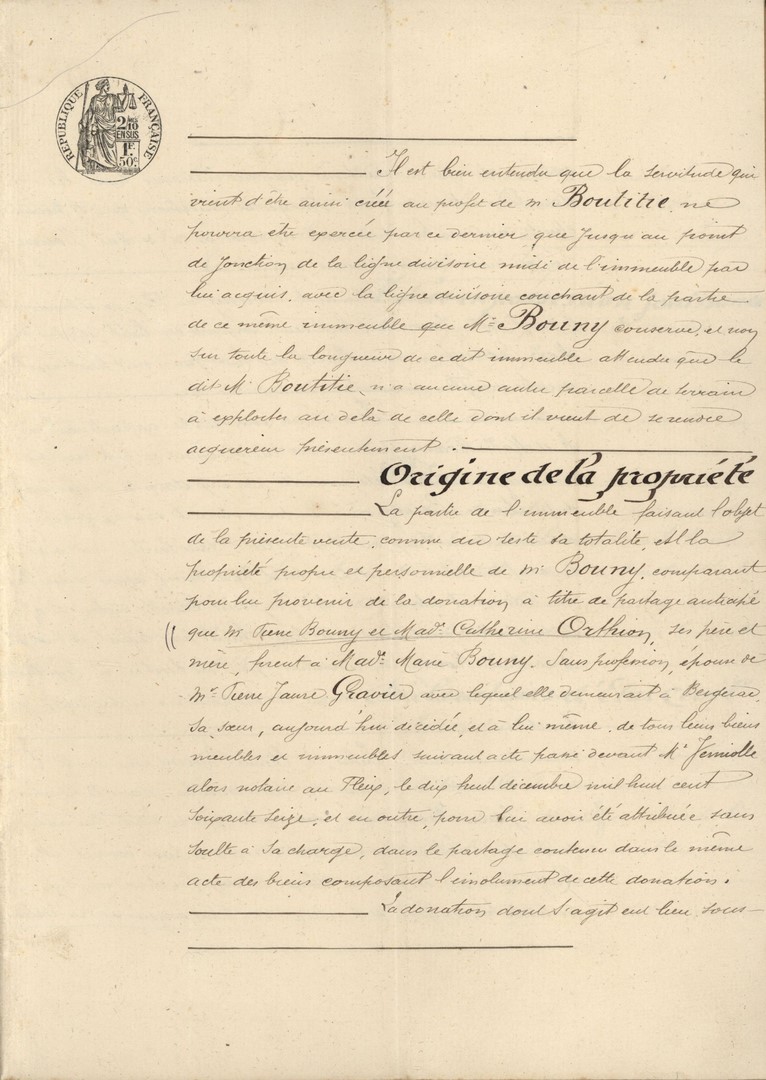 RÉPUBLIQUE FRANÇAISE
2/10
EN SUS
1F.
50c.
Il est bien entendu que la servitude qui
vient d'être ainsi créée au profit de mr Boutitie, ne
pourra être exercée par ce dernier que jusqu'au point
de jonction de la ligne divisoire midi de l'immeuble par
lui acquis, avec la ligne divisoire couchant de la partie
de ce même immeuble que Mr Bouny conserve, et non
sur toute la longueur de ce dit immeuble attendu que le
dit Mr Boutitie, n'a aucune autre parcelle de terrain
à exploiter au delà de celle dont il vient de se rendre
acquereur présentement.
Origine de la propriété
La partie de l'immeuble faisant l'objet
de la présente vente, comme du reste sa totalité, est la
propriété propre et personnelle de mr Bouny, comparant
pour lui provenir de la donation à titre de partage anticipé
que mr Pierre Bouny et Made Catherine Orthion, ses père et
mère, firent à Made Marie Bouny, sans profession, épouse de
Mr Pierre Gravier avec lequel elle demeurait à Bergerac,
sa sœur, aujourd'hui décédée, et à lui même, de tous leurs biens
meubles et immeubles suivant acte passé devant Me
alors notaire au Fleix, le dix huit décembre mil huit cent
soixante seize, et en outre, pour lui avoir été attribuée sans
soulte à sa charge, dans le partage contenu dans le même
acte des biens composant l'émolument de cette donation.
La donation dont s'agit eut lieu sous